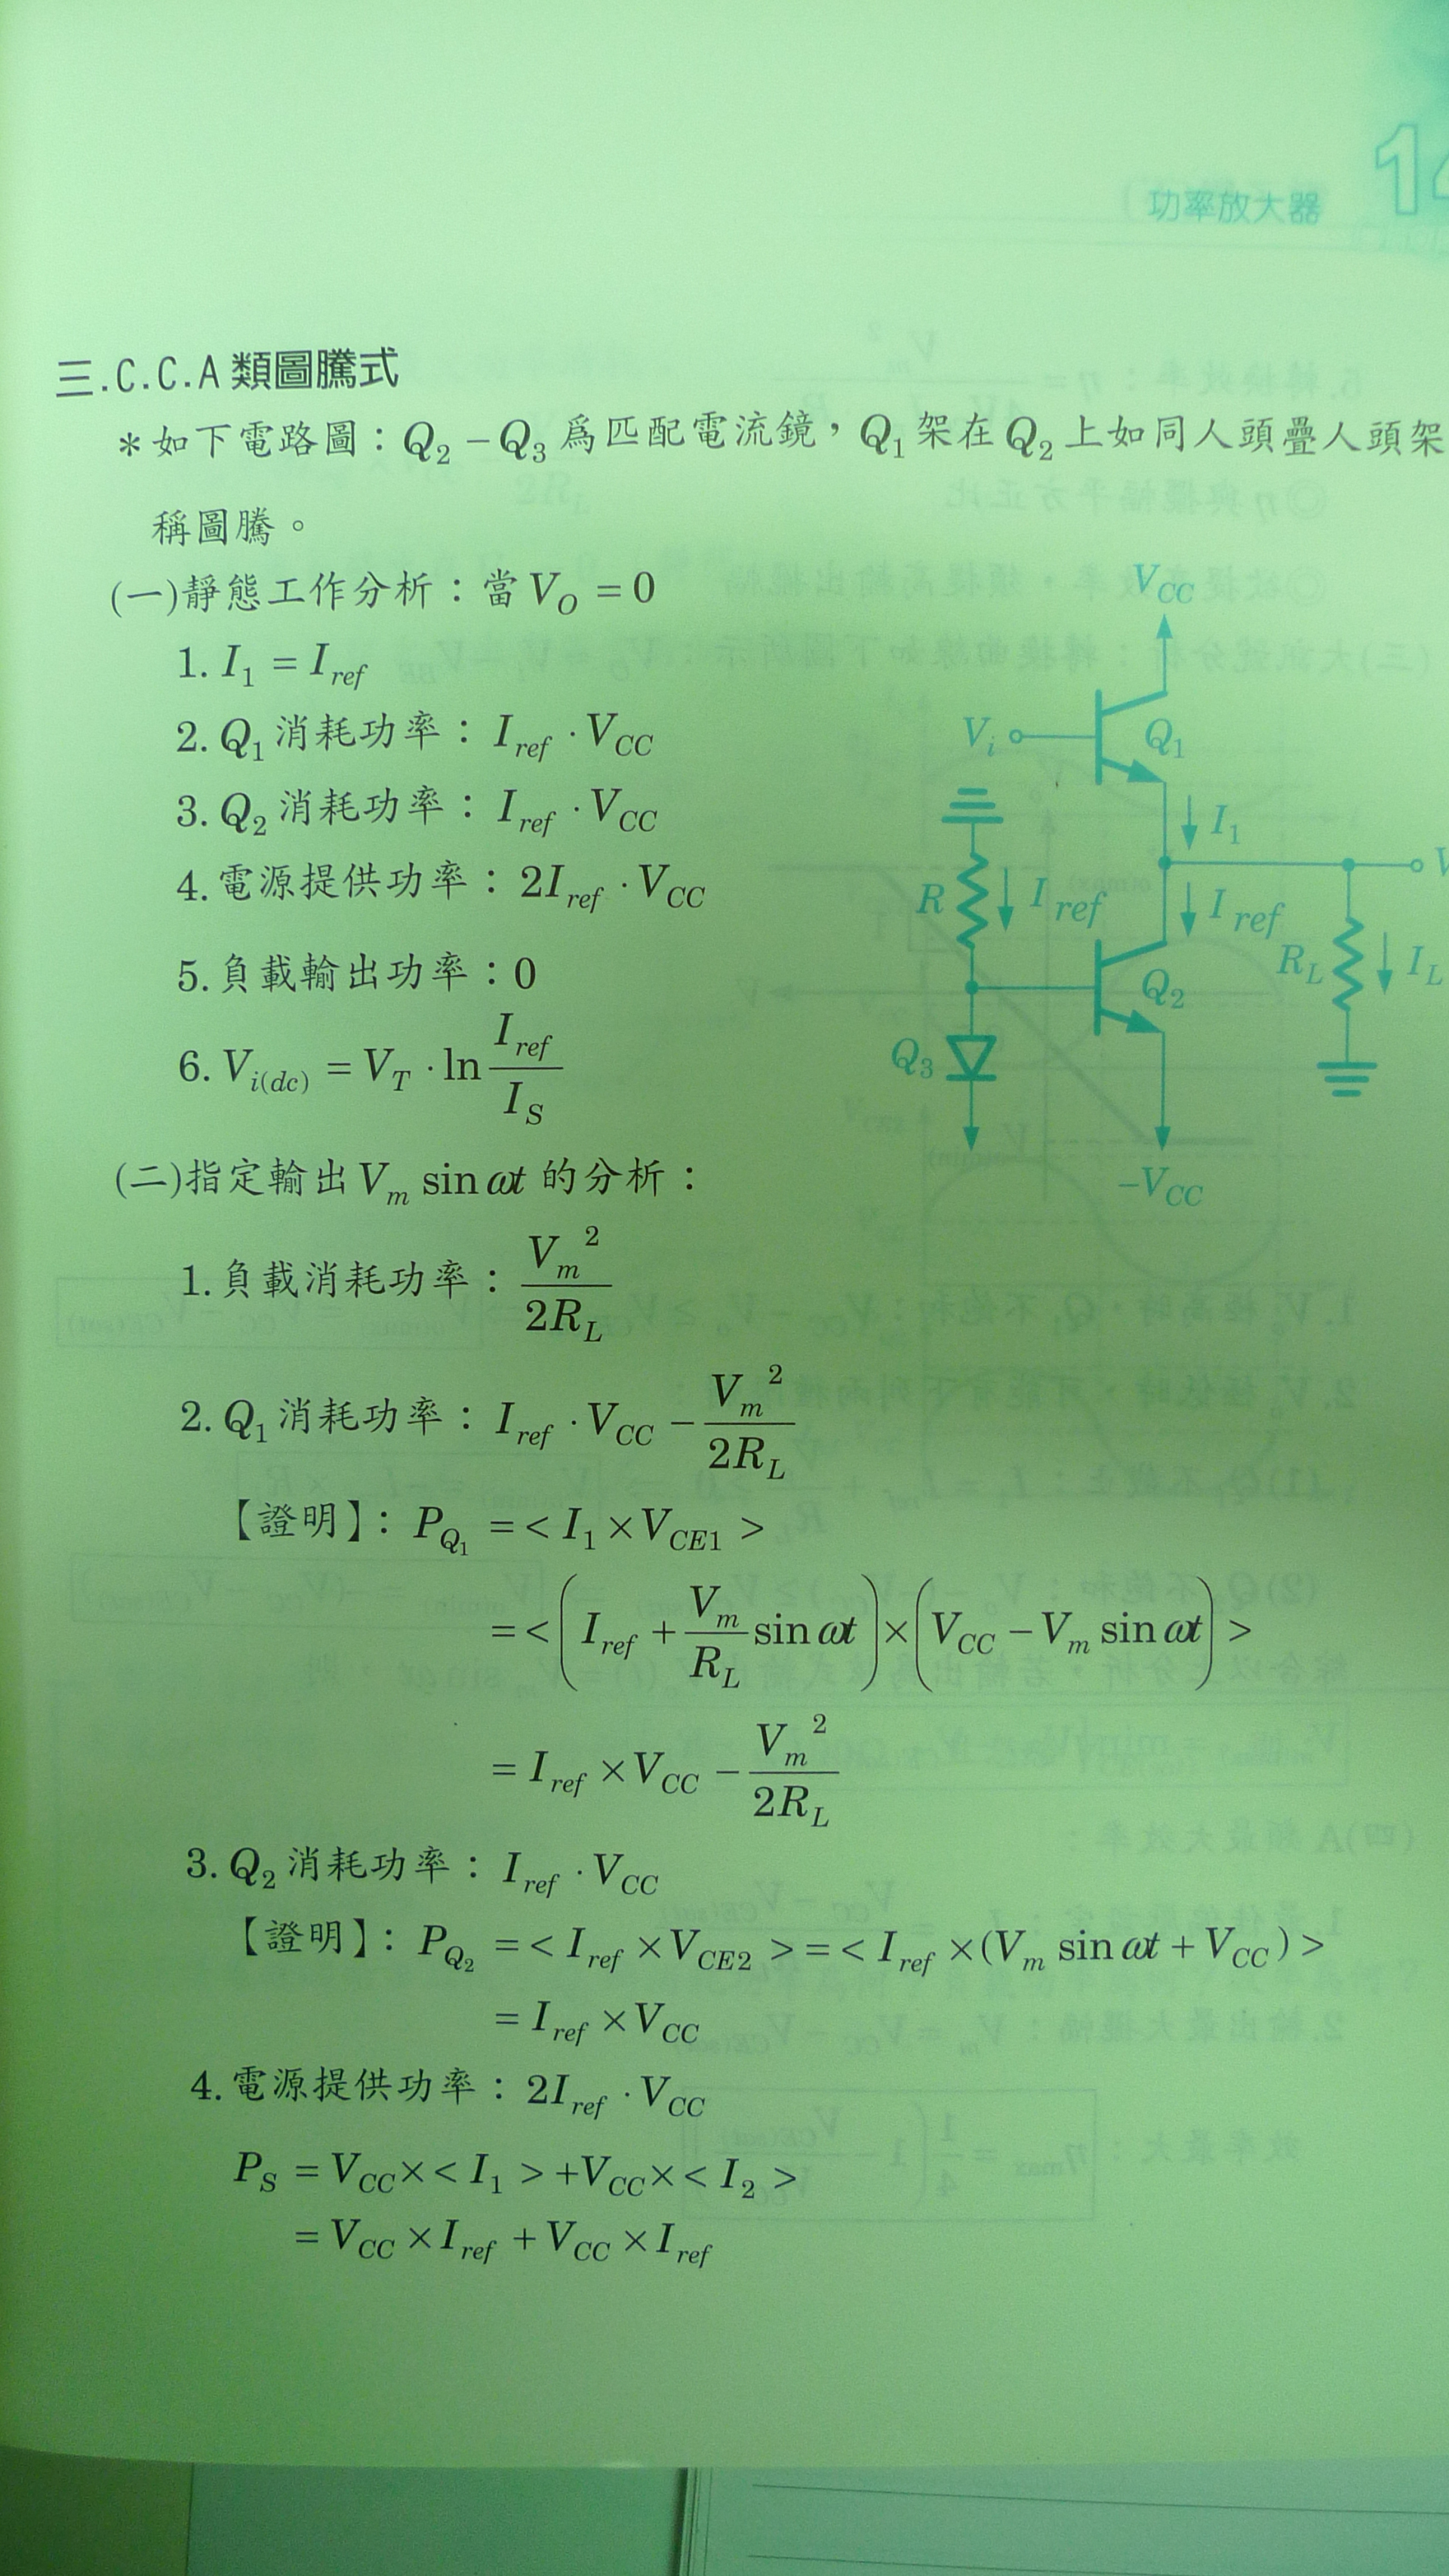 功率放大器
14
三.C.C.A 類圖騰式
*如下電路圖：Q₂－Q₃為匹配電流鏡，Q₁架在Q₂上如同人頭疊人頭架
稱圖騰。
(一)靜態工作分析：當 V_O = 0
1. I₁ = I_ref
2. Q₁消耗功率：I_ref · V_CC
3. Q₂消耗功率：I_ref · V_CC
4. 電源提供功率：2I_ref · V_CC
5. 負載輸出功率：0
6. V_i(dc) = V_T · ln I_ref / I_S
V_CC
V_i
Q₁
I₁
V
R
I_ref
I_ref
R_L
I_L
Q₂
Q₃
–V_CC
(二)指定輸出 V_m sin ωt 的分析：
1. 負載消耗功率：V_m² / 2R_L
2. Q₁消耗功率：I_ref · V_CC – V_m² / 2R_L
【證明】：P_Q₁ = < I₁ × V_CE1 >
= < (I_ref + V_m / R_L sin ωt) × (V_CC – V_m sin ωt) >
= I_ref × V_CC – V_m² / 2R_L
3. Q₂消耗功率：I_ref · V_CC
【證明】：P_Q₂ = < I_ref × V_CE2 > = < I_ref × (V_m sin ωt + V_CC) >
= I_ref × V_CC
4. 電源提供功率：2I_ref · V_CC
P_S = V_CC × < I₁ > + V_CC × < I₂ >
= V_CC × I_ref + V_CC × I_ref